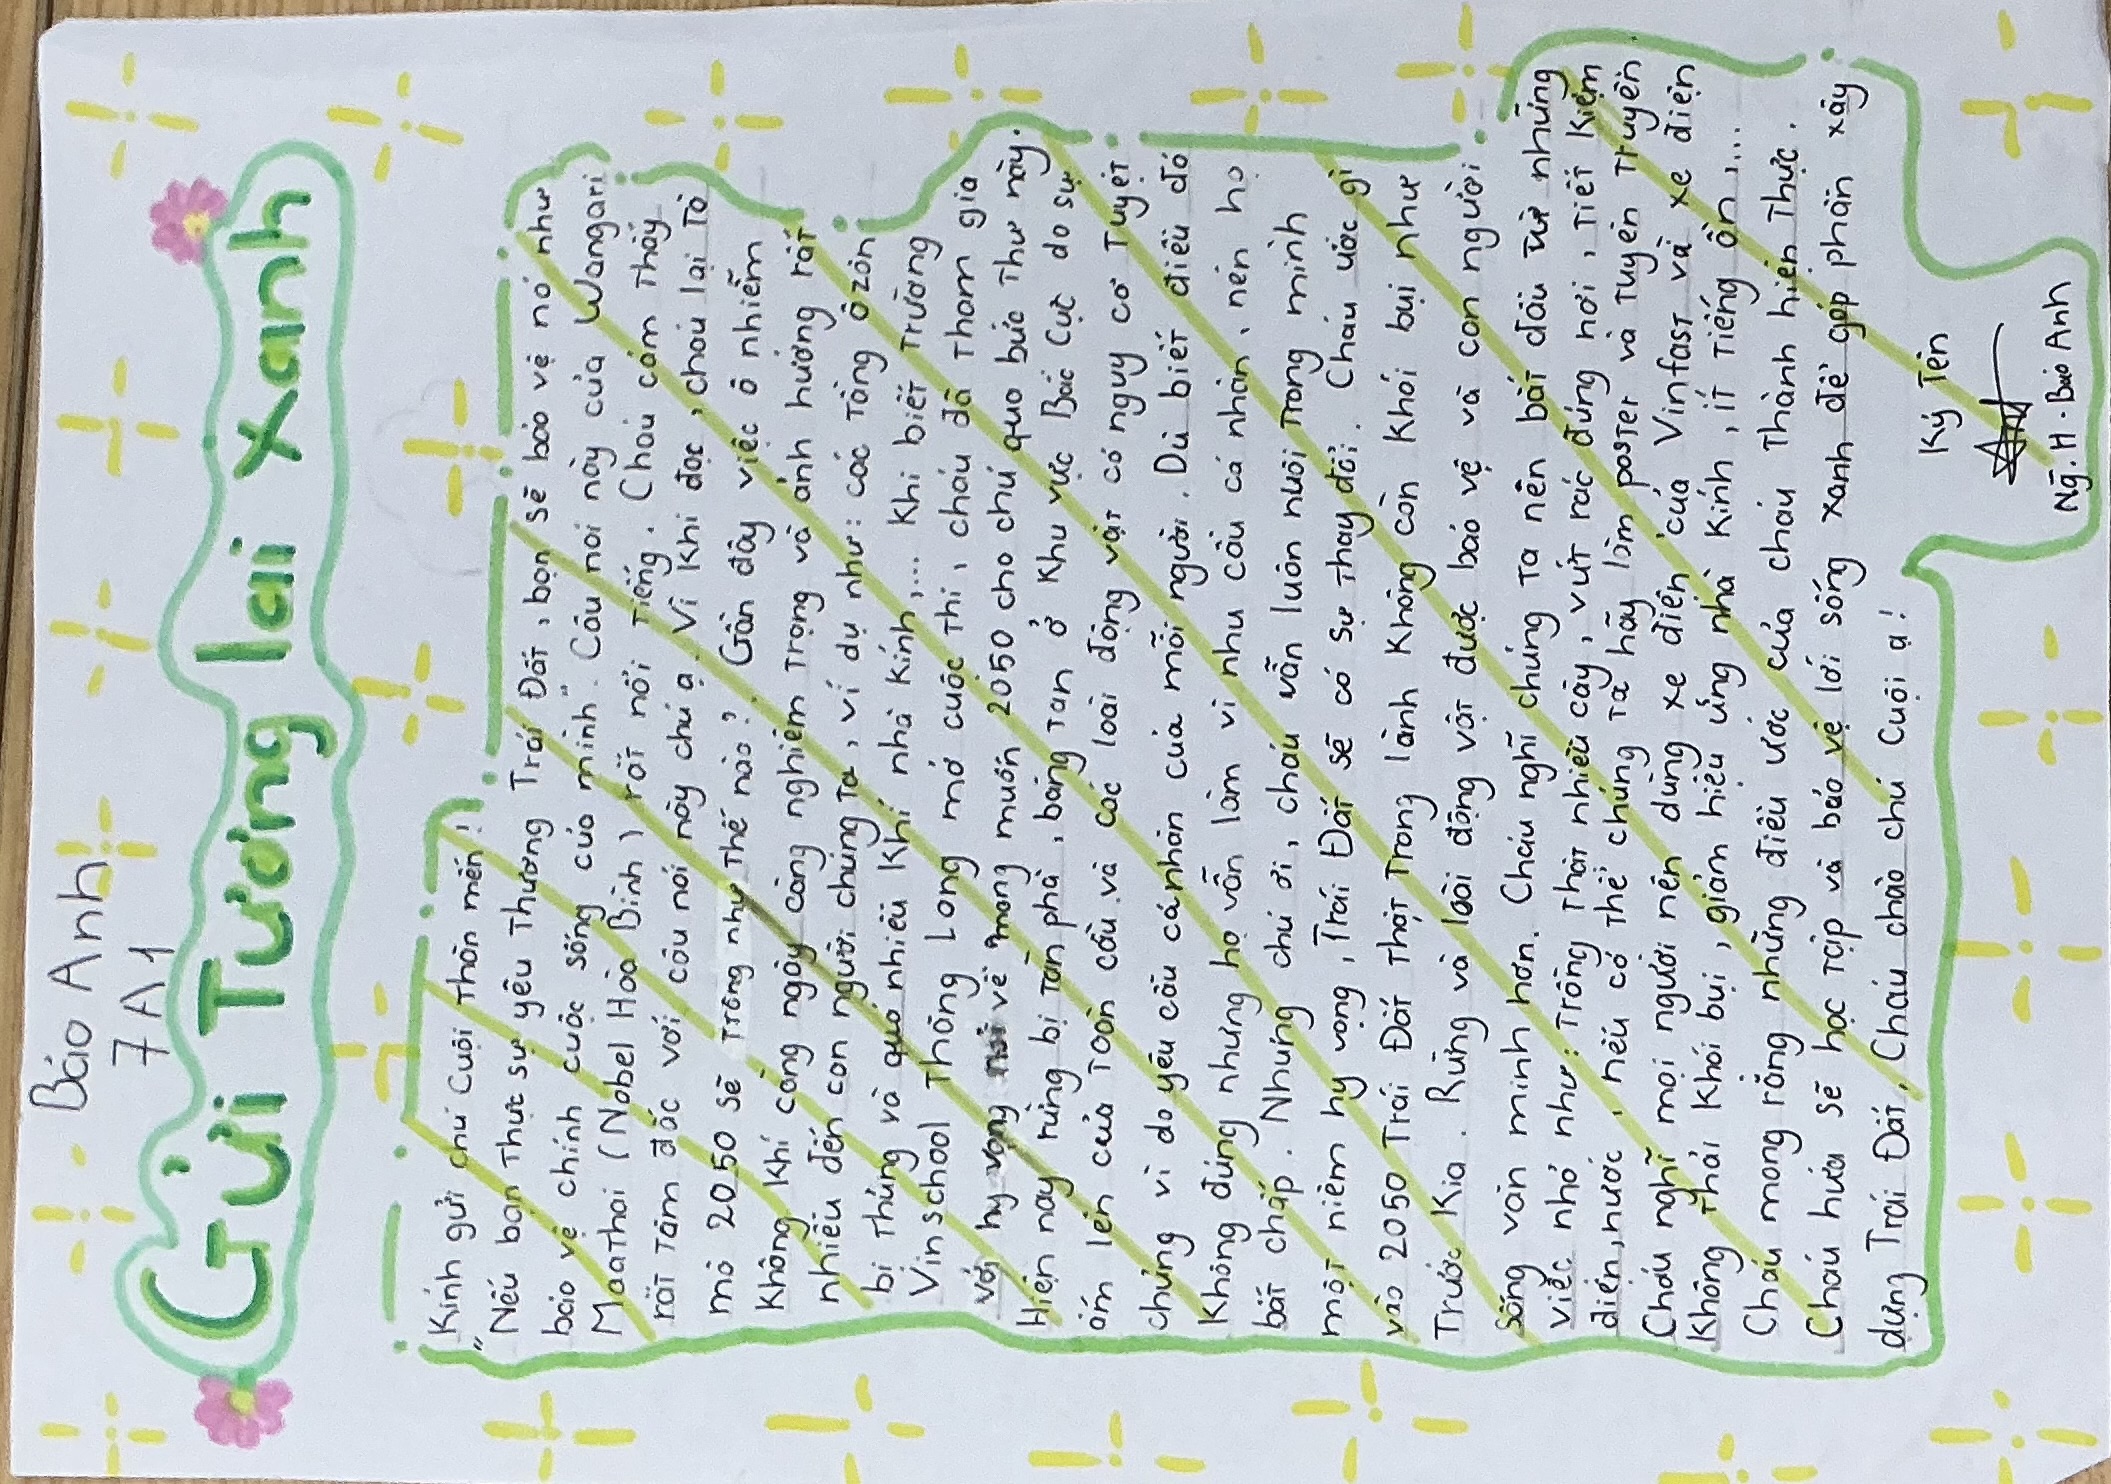 Bảo Anh
7A1
Gửi Tương lai xanh
Kính gửi chú Cuội thân mến!
"Nếu bạn thực sự yêu thương Trái Đất, bạn sẽ bảo vệ nó như
bảo vệ chính cuộc sống của mình". Câu nói này của Wangari
Maathai (Nobel Hoà Bình) rất nổi tiếng. Cháu cảm thấy
rất tâm đắc với câu nói này chú ạ. Vì khi đọc, cháu lại tò
mò 2050 sẽ trông như thế nào? Gần đây việc ô nhiễm
không khí càng ngày càng nghiêm trọng và ảnh hưởng rất
nhiều đến con người chúng ta, ví dụ như: các tầng ôzôn
bị thủng và quá nhiều khí nhà kính,... Khi biết trường
Vinschool Thăng Long mở cuộc thi, cháu đã tham gia
với hy vọng về mong muốn 2050 cho chú qua bức thư này.
Hiện nay rừng bị tàn phá, băng tan ở khu vực Bắc Cực do sự
ấm lên của toàn cầu và các loài động vật có nguy cơ tuyệt
chủng vì do yêu cầu cá nhân của mỗi người. Dù biết điều đó
không đúng nhưng họ vẫn làm vì nhu cầu cá nhân, nên họ
bất chấp. Nhưng chú ơi, cháu vẫn luôn nuôi trong mình
một niềm hy vọng, Trái Đất sẽ có sự thay đổi. Cháu ước gì
vào 2050 Trái Đất thật trong lành không còn khói bụi như
trước kia. Rừng và loài động vật được bảo vệ và con người
sống văn minh hơn. Cháu nghĩ chúng ta nên bắt đầu từ những
việc nhỏ như: trồng thật nhiều cây, vứt rác đúng nơi, tiết kiệm
điện, nước, nếu có thể chúng ta hãy làm poster và tuyên truyền
Cháu nghĩ mọi người nên dùng xe điện của Vinfast vì xe điện
không thải khói bụi, giảm hiệu ứng nhà kính, ít tiếng ồn,...
Cháu mong rằng những điều ước của cháu thành hiện thực.
Cháu hứa sẽ học tập và bảo vệ lối sống xanh để góp phần xây
dựng Trái Đất, Cháu chào chú Cuội ạ!
Ký tên
Ng. H. Bảo Anh